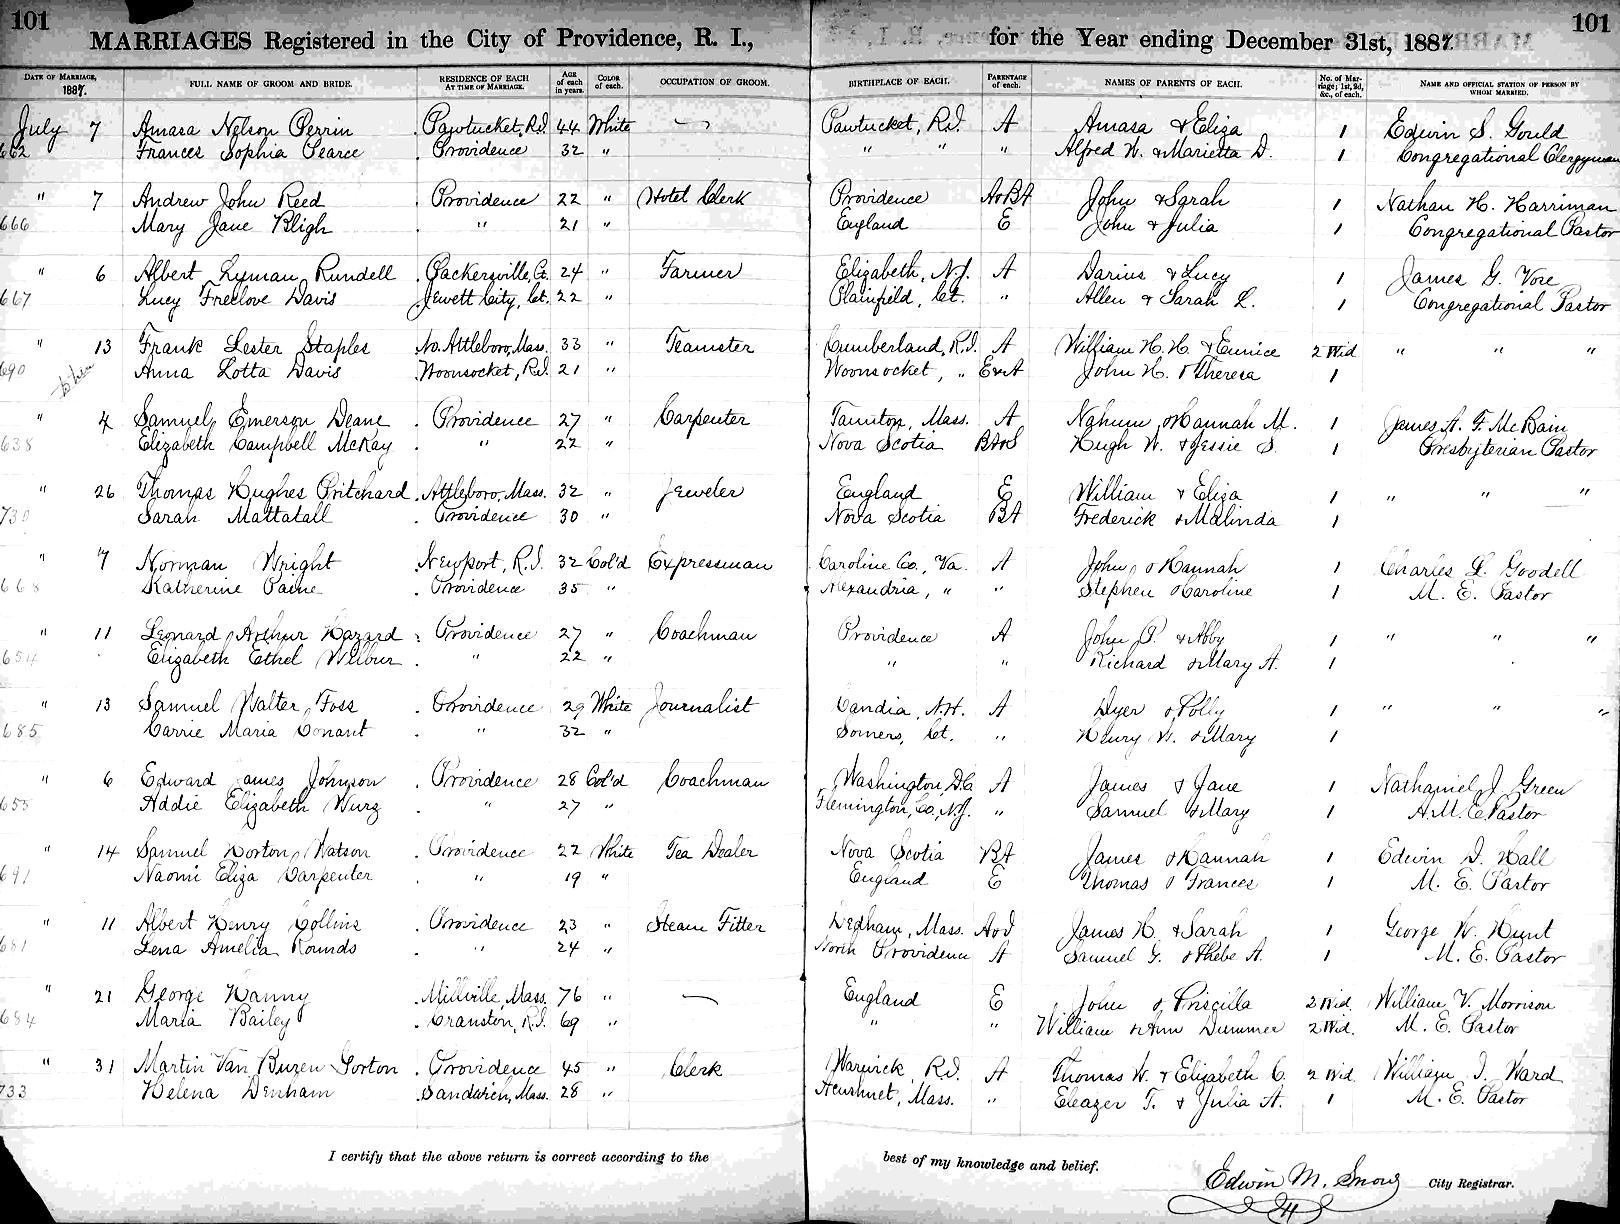 101 101
MARRIAGES Registered in the City of Providence, R. I., for the Year ending December 31st, 1887.
DATE OF MARRIAGE, 1887. FULL NAME OF GROOM AND BRIDE. RESIDENCE OF EACH AT TIME OF MARRIAGE. AGE of each in years. COLOR of each. OCCUPATION OF GROOM. BIRTHPLACE OF EACH. PARENTAGE of each. NAMES OF PARENTS OF EACH. No. of Marriage; 1st, 2d, &c., of each. NAME AND OFFICIAL STATION OF PERSON BY WHOM MARRIED.
July 7 Amasa Nelson Perrin Pawtucket, R.I. 44 White — Pawtucket, R.I. A Amasa & Eliza 1 Edwin S. Gould
662 Frances Sophia Pearce Providence 32 " " " " Alfred W. & Marietta D. 1 Congregational Clergyman
" 7 Andrew John Reed Providence 22 " Hotel Clerk Providence A&BA John & Sarah 1 Nathan H. Harriman
666 Mary Jane Bligh " 21 " England E John & Julia 1 Congregational Pastor
" 6 Albert Lyman Rundell Packersville, Ct. 24 " Farmer Elizabeth, N.J. A Darius & Lucy 1 James G. Vose
667 Lucy Freelove Davis Jewett City, Ct. 22 " Plainfield, Ct. " Allen & Sarah L. 1 Congregational Pastor
" 13 Frank Lester Staples No. Attleboro, Mass. 33 " Teamster Cumberland, R.I. A William H. H. & Eunice 2 Wid. " " "
690 Anna Lotta Davis Woonsocket, R.I. 21 " Woonsocket, " E&A John H. & Theresa 1
" 4 Samuel Emerson Deane Providence 27 " Carpenter Taunton, Mass. A Nahum & Hannah M. 1 James A. F. McBain
638 Elizabeth Campbell McKay " 22 " Nova Scotia BA&S Hugh W. & Jessie S. 1 Presbyterian Pastor
" 26 Thomas Hughes Pritchard Attleboro, Mass. 32 " Jeweler England E William & Eliza 1 " " "
730 Sarah Mattatall Providence 30 " Nova Scotia BA Frederick & Malinda 1
" 7 Norman Wright Newport, R.I. 32 Col'd Expressman Caroline Co., Va. A John & Hannah 1 Charles L. Goodell
668 Katherine Paine Providence 35 " Alexandria, " " Stephen & Caroline 1 M. E. Pastor
" 11 Leonard Arthur Hazard Providence 27 " Coachman Providence A John P. & Abby 1 " " "
654 Elizabeth Ethel Wilbur " 22 " " " Richard & Mary A. 1
" 13 Samuel Walter Foss Providence 29 White Journalist Candia, N.H. A Dyer & Polly 1 " " "
685 Carrie Maria Conant " 32 " Somers, Ct. " Henry W. & Mary 1
" 6 Edward James Johnson Providence 28 Col'd Coachman Washington, D.C. A James & Jane 1 Nathaniel J. Green
655 Addie Elizabeth Wurz " 27 " Flemington, Co., N.J. " Samuel & Mary 1 A.M.E. Pastor
" 14 Samuel Horton Watson Providence 22 White Tea Dealer Nova Scotia BA James & Hannah 1 Edwin D. Hall
691 Naomi Eliza Carpenter " 19 " England E Thomas & Frances 1 M. E. Pastor
" 11 Albert Henry Collins Providence 23 " Steam Fitter Dedham, Mass. A&I James H. & Sarah 1 George W. Hunt
681 Lena Amelia Rounds " 24 " North Providence A Samuel G. & Phebe A. 1 M. E. Pastor
" 21 George Hanny Millville, Mass. 76 " — England E John & Priscilla 2 Wid. William V. Morrison
684 Maria Bailey Cranston, R.I. 69 " " " William & Ann Dummer 2 Wid. M. E. Pastor
" 31 Martin Van Buren Gorton Providence 45 " Clerk Warwick, R.I. A Thomas W. & Elizabeth C. 2 Wid. William I. Ward
733 Helena Denham Sandwich, Mass. 28 " Acushnet, Mass. " Eleazer T. & Julia A. 1 M. E. Pastor
I certify that the above return is correct according to the best of my knowledge and belief.
Edwin M. Snow City Registrar.